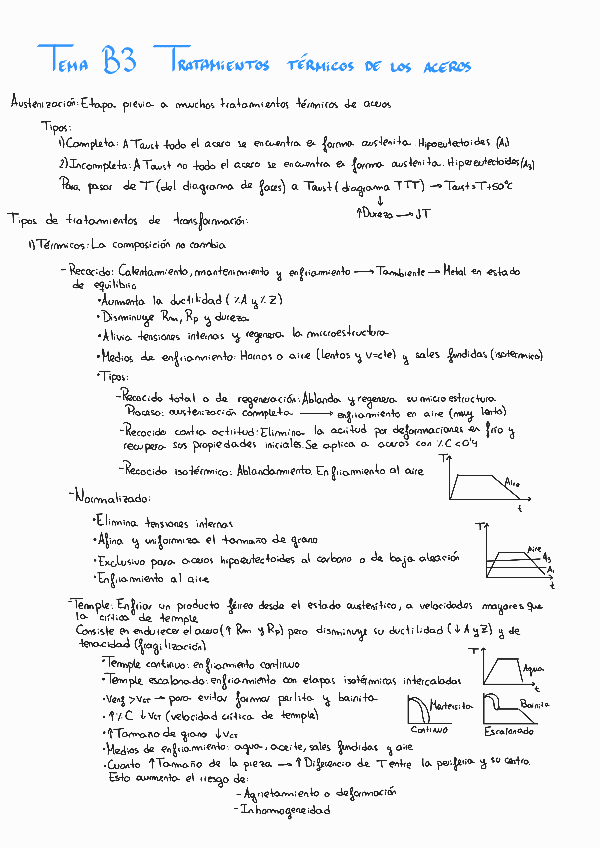 TEMA B3 TRATAMIENTOS TÉRMICOS DE LOS ACEROS
Austenización: Etapa previa a muchos tratamientos térmicos de aceros
Tipos:
1) Completa: A Taust todo el acero se encuentra en forma austenita. Hipoeutectoides (A₁)
2) Incompleta: A Taust no todo el acero se encuentra en forma austenita. Hipereutectoides (A₃)
Para pasar de T (del diagrama de faces) a Taust (diagrama TTT) → Taust = T+50°C
↓
↑Dureza → ↓T
Tipos de tratamientos de transformación:
1) Térmicos: La composición no cambia
- Recocido: Calentamiento, mantenimiento y enfriamiento → Tambiente → Metal en estado
de equilibrio
• Aumenta la ductilidad (%A y %Z)
• Disminuye Rm, Rp y dureza
• Alivia tensiones internas y regenera la microestructura
• Medios de enfriamiento: Hornos o aire (lentos y v=cte) y sales fundidas (isotérmico)
• Tipos:
- Recocido total o de regeneración: Ablanda y regenera su microestructura
Proceso: austenización completa → enfriamiento en aire (muy lento)
- Recocido contra acritud: Elimina la acritud por deformaciones en frío y
recupera sus propiedades iniciales. Se aplica a aceros con %C<0'4
- Recocido isotérmico: Ablandamiento. Enfriamiento al aire
T
Aire
t
- Normalizado:
• Elimina tensiones internas
• Afina y uniformiza el tamaño de grano
• Exclusivo para aceros hipoeutectoides al carbono o de baja aleación
• Enfriamiento al aire
T
Aire
A₃
A₁
t
- Temple: Enfriar un producto férreo desde el estado austenítico, a velocidades mayores que
la crítica de temple
Consiste en endurecer el acero (↑Rm y Rp) pero disminuye su ductilidad (↓A y Z) y de
tenacidad (fragilización)
• Temple continuo: enfriamiento continuo
• Temple escalonado: enfriamiento con etapas isotérmicas intercaladas
T
Agua
t
• Venf > Vcr → para evitar formar perlita y bainita
• ↑%C ↓Vcr (velocidad crítica de temple)
• ↑Tamaño de grano ↓Vcr
Martensita
Continuo
Bainita
Escalonado
• Medios de enfriamiento: agua, aceite, sales fundidas y aire
• Cuanto ↑Tamaño de la pieza → ↑Diferencia de T entre la periferia y su centro.
Esto aumenta el riesgo de:
- Agrietamiento o deformación
- Inhomogeneidad